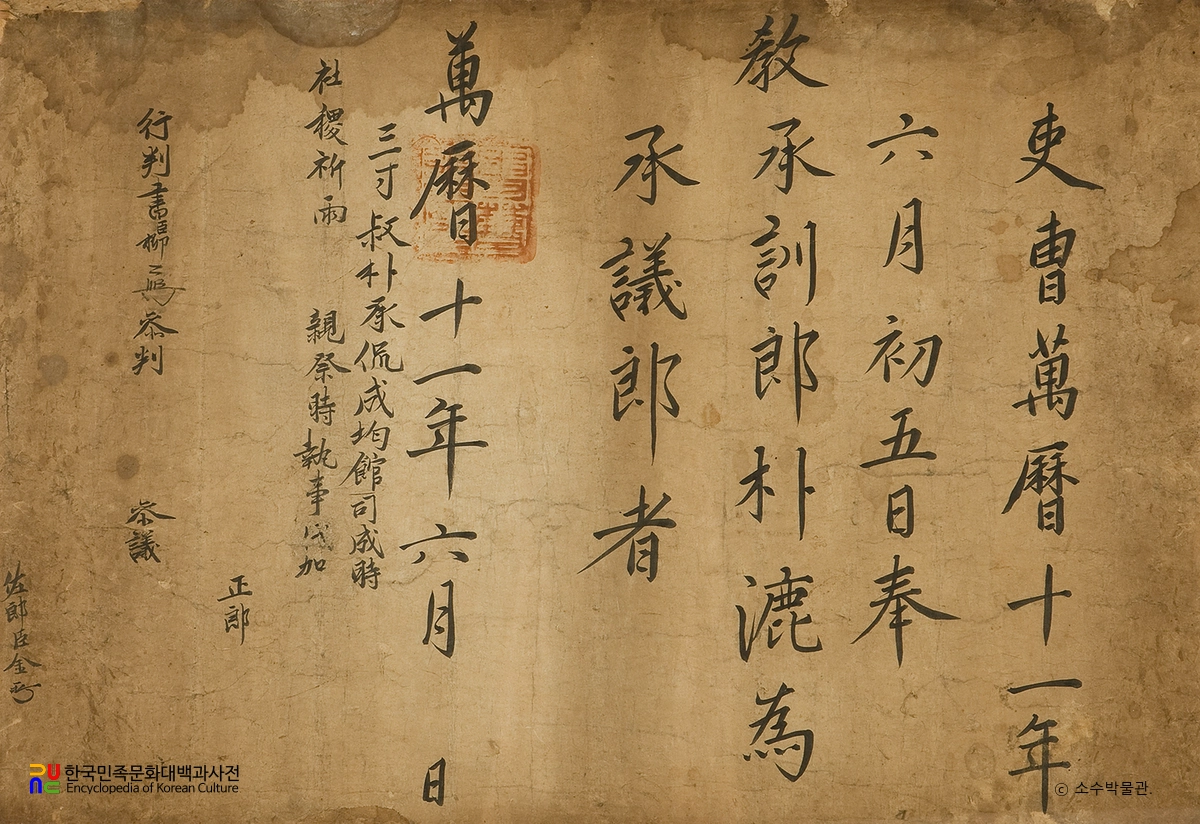 吏曹萬曆十一年
六月初五日奉
敎承訓郎朴漉為
承議郎者
萬曆十一年六月 日
三寸叔朴承侃成均館司成時
社稷祈雨 親祭時執事代加
正郎
行判書臣柳 叅判 叅議
佐郎臣金
한국민족문화대백과사전
Encyclopedia of Korean Culture
© 소수박물관.